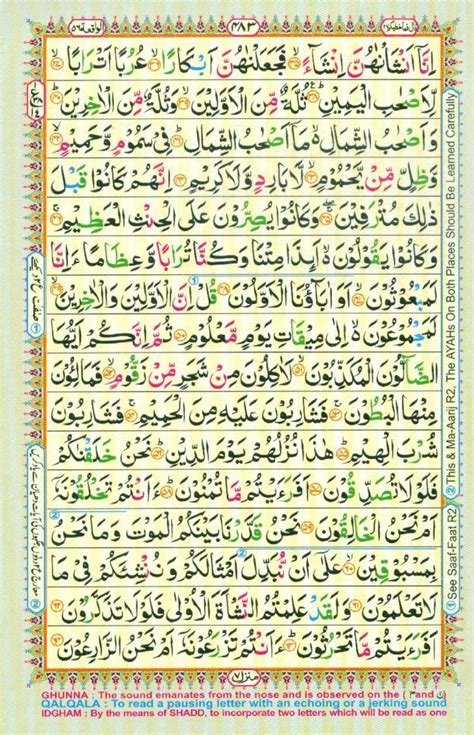 قال فما خطبكم ٢٧
٤٨٣
الواقعة ٥٦
اِنَّاۤ اَنْشَاْنٰهُنَّ اِنْشَآءً ۙ فَجَعَلْنٰهُنَّ اَبْكَارًا ۙ عُرُبًا اَتْرَابًا ۙ
لِّاَصْحٰبِ الْيَمِيْنِ ؕ ثُلَّةٌ مِّنَ الْاَوَّلِيْنَ ۙ وَثُلَّةٌ مِّنَ الْاٰخِرِيْنَ ؕ
وَاَصْحٰبُ الشِّمَالِ ۙ مَاۤ اَصْحٰبُ الشِّمَالِ ؕ فِيْ سَمُوْمٍ وَّحَمِيْمٍ ۙ
وَّظِلٍّ مِّنْ يَّحْمُوْمٍ ۙ لَّا بَارِدٍ وَّلَا كَرِيْمٍ ۙ اِنَّهُمْ كَانُوْا قَبْلَ
ذٰلِكَ مُتْرَفِيْنَ ۚ وَكَانُوْا يُصِرُّوْنَ عَلَى الْحِنْثِ الْعَظِيْمِ ۚ
وَكَانُوْا يَقُوْلُوْنَ ۙ اَىِٕذَا مِتْنَا وَكُنَّا تُرَابًا وَّعِظَامًا ءَاِنَّا
لَمَبْعُوْثُوْنَ ۙ اَوَ اٰبَآؤُنَا الْاَوَّلُوْنَ قُلْ اِنَّ الْاَوَّلِيْنَ وَالْاٰخِرِيْنَ ۙ
لَمَجْمُوْعُوْنَ ۙ اِلٰى مِيْقَاتِ يَوْمٍ مَّعْلُوْمٍ ثُمَّ اِنَّكُمْ اَيُّهَا
الضَّآلُّوْنَ الْمُكَذِّبُوْنَ ۙ لَاٰكِلُوْنَ مِنْ شَجَرٍ مِّنْ زَقُّوْمٍ ۙ فَمَالِـُٔوْنَ
مِنْهَا الْبُطُوْنَ ۚ فَشٰرِبُوْنَ عَلَيْهِ مِنَ الْحَمِيْمِ ۚ فَشٰرِبُوْنَ
شُرْبَ الْهِيْمِ ؕ هٰذَا نُزُلُهُمْ يَوْمَ الدِّيْنِ ؕ نَحْنُ خَلَقْنٰكُمْ
فَلَوْلَا تُصَدِّقُوْنَ اَفَرَءَيْتُمْ مَّا تُمْنُوْنَ ؕ ءَاَنْتُمْ تَخْلُقُوْنَهٗۤ
اَمْ نَحْنُ الْخٰلِقُوْنَ نَحْنُ قَدَّرْنَا بَيْنَكُمُ الْمَوْتَ وَمَا نَحْنُ
بِمَسْبُوْقِيْنَ ۙ عَلٰۤى اَنْ نُّبَدِّلَ اَمْثَالَكُمْ وَنُنْشِئَكُمْ فِيْ مَا
لَا تَعْلَمُوْنَ وَلَقَدْ عَلِمْتُمُ النَّشْاَةَ الْاُوْلٰى فَلَوْلَا تَذَكَّرُوْنَ
اَفَرَءَيْتُمْ مَّا تَحْرُثُوْنَ ؕ ءَاَنْتُمْ تَزْرَعُوْنَهٗۤ اَمْ نَحْنُ الزّٰرِعُوْنَ
منزل ٧
① See Saaf-Faat R2 ② This & Ma-Aarij R2, The AYAHs On Both Places Should Be Learned Carefully
GHUNNA : The sound emanates from the nose and is observed on the ( م and ن )
QALQALA : To read a pausing letter with an echoing or a jerking sound
IDGHAM : By the means of SHADD, to incorporate two letters which will be read as one